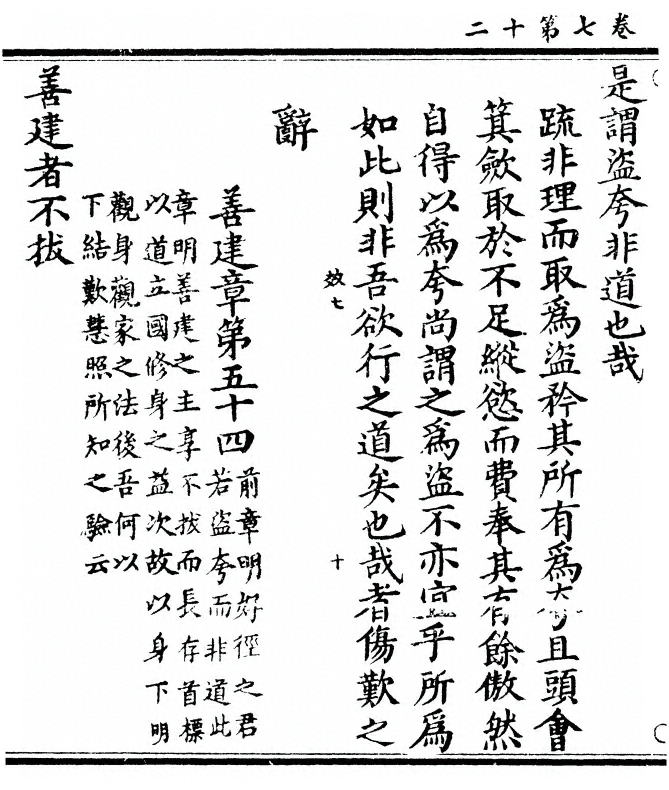 卷七第十二
是謂盜夸非道也哉
疏非理而取爲盜矜其所有爲夸且頭會
箕歛取於不足縱慾而費奉其有餘傲然
自得以爲夸尚謂之爲盜不亦宜乎所爲
如此則非吾欲行之道矣也哉者傷歎之
效七
十
辭
善建章第五十四
前章明好徑之君
若盜夸而非道此
章明善建之主享不拔而長存首標
以道立國修身之益次故以身下明
觀身觀家之法後吾何以
下結歎慧照所知之驗云
善建者不拔